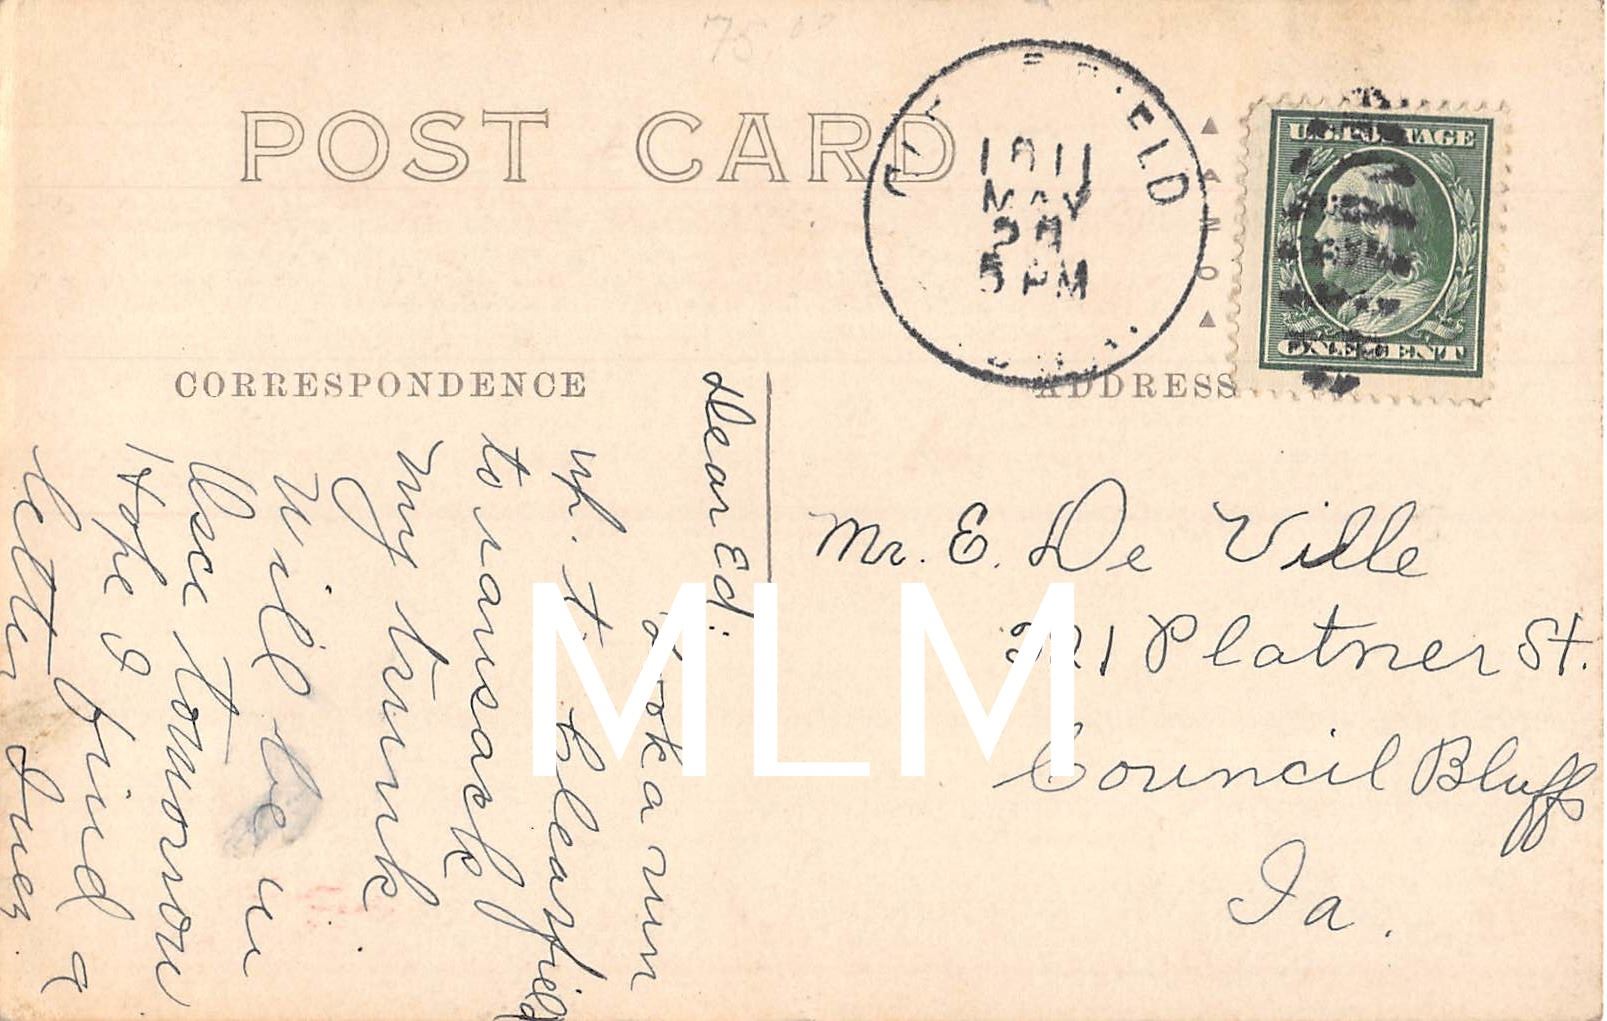 POST CARD
ELD
1911
MAY
29
5 PM
U.S. POSTAGE
ONE CENT
CORRESPONDENCE
ADDRESS
Dear Ed:
took a run
up to Clearfield
to ransack
my trunk
Will be in
Osce tomorrow
Hope I find a
letter Inez.
Mr. E. De Ville
321 Platner St.
Council Bluffs
Ia.
MLM